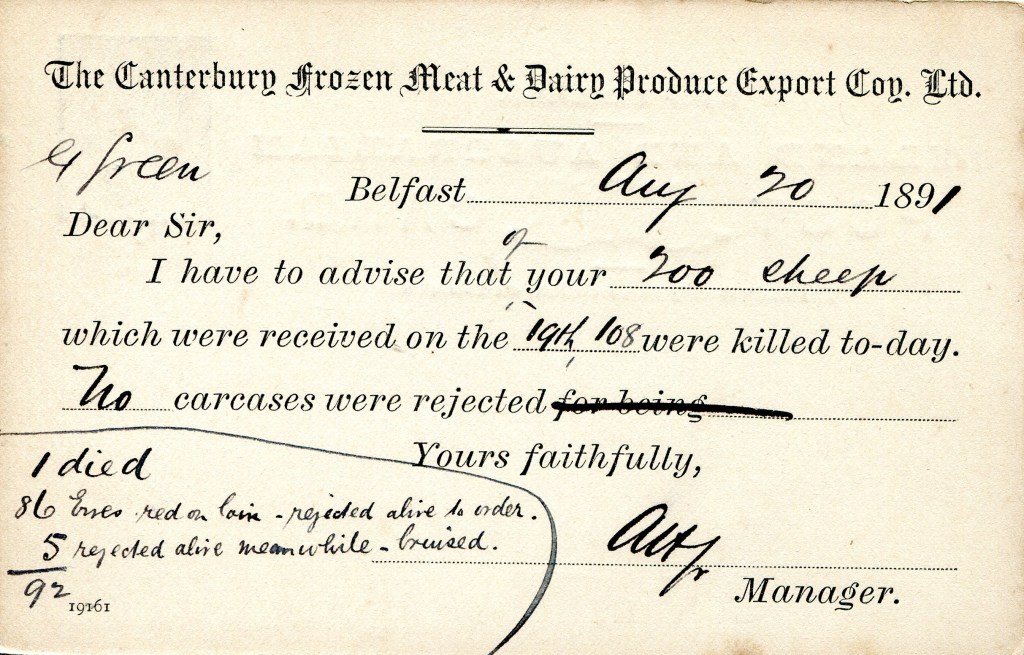 The Canterbury Frozen Meat & Dairy Produce Export Coy. Ltd.
G Green
Belfast Aug 20 1891
Dear Sir,
I have to advise that of your 200 sheep
which were received on the 19th, 108 were killed to-day.
No carcases were rejected for being
Yours faithfully,
1 died
86 Ewes red on loin - rejected alive to order.
5 rejected alive meanwhile - bruised.
92
Manager.
19161